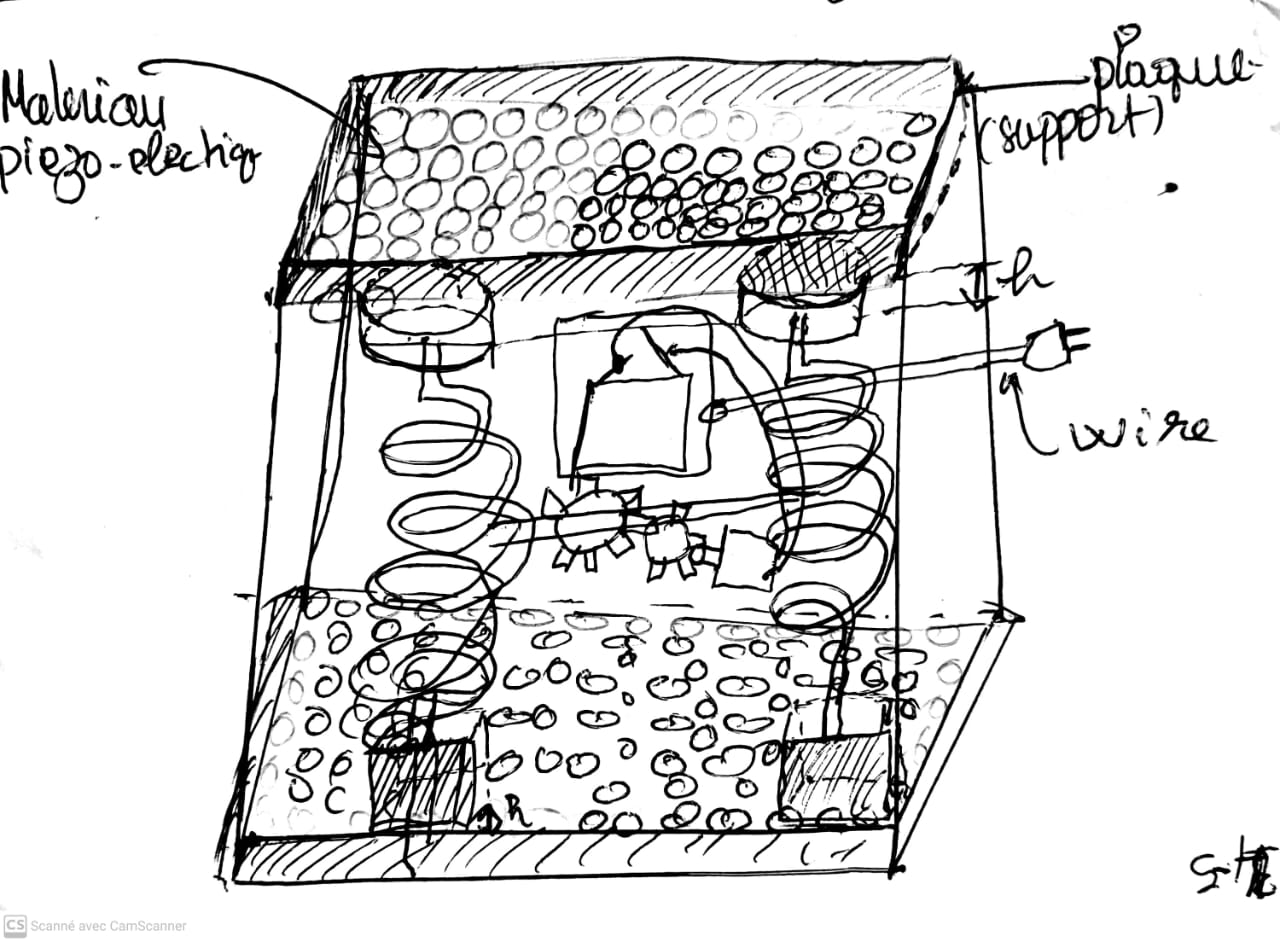 Materiau
piezo-electriq
plaque
(support)
h
wire
h
CS Scanné avec CamScanner